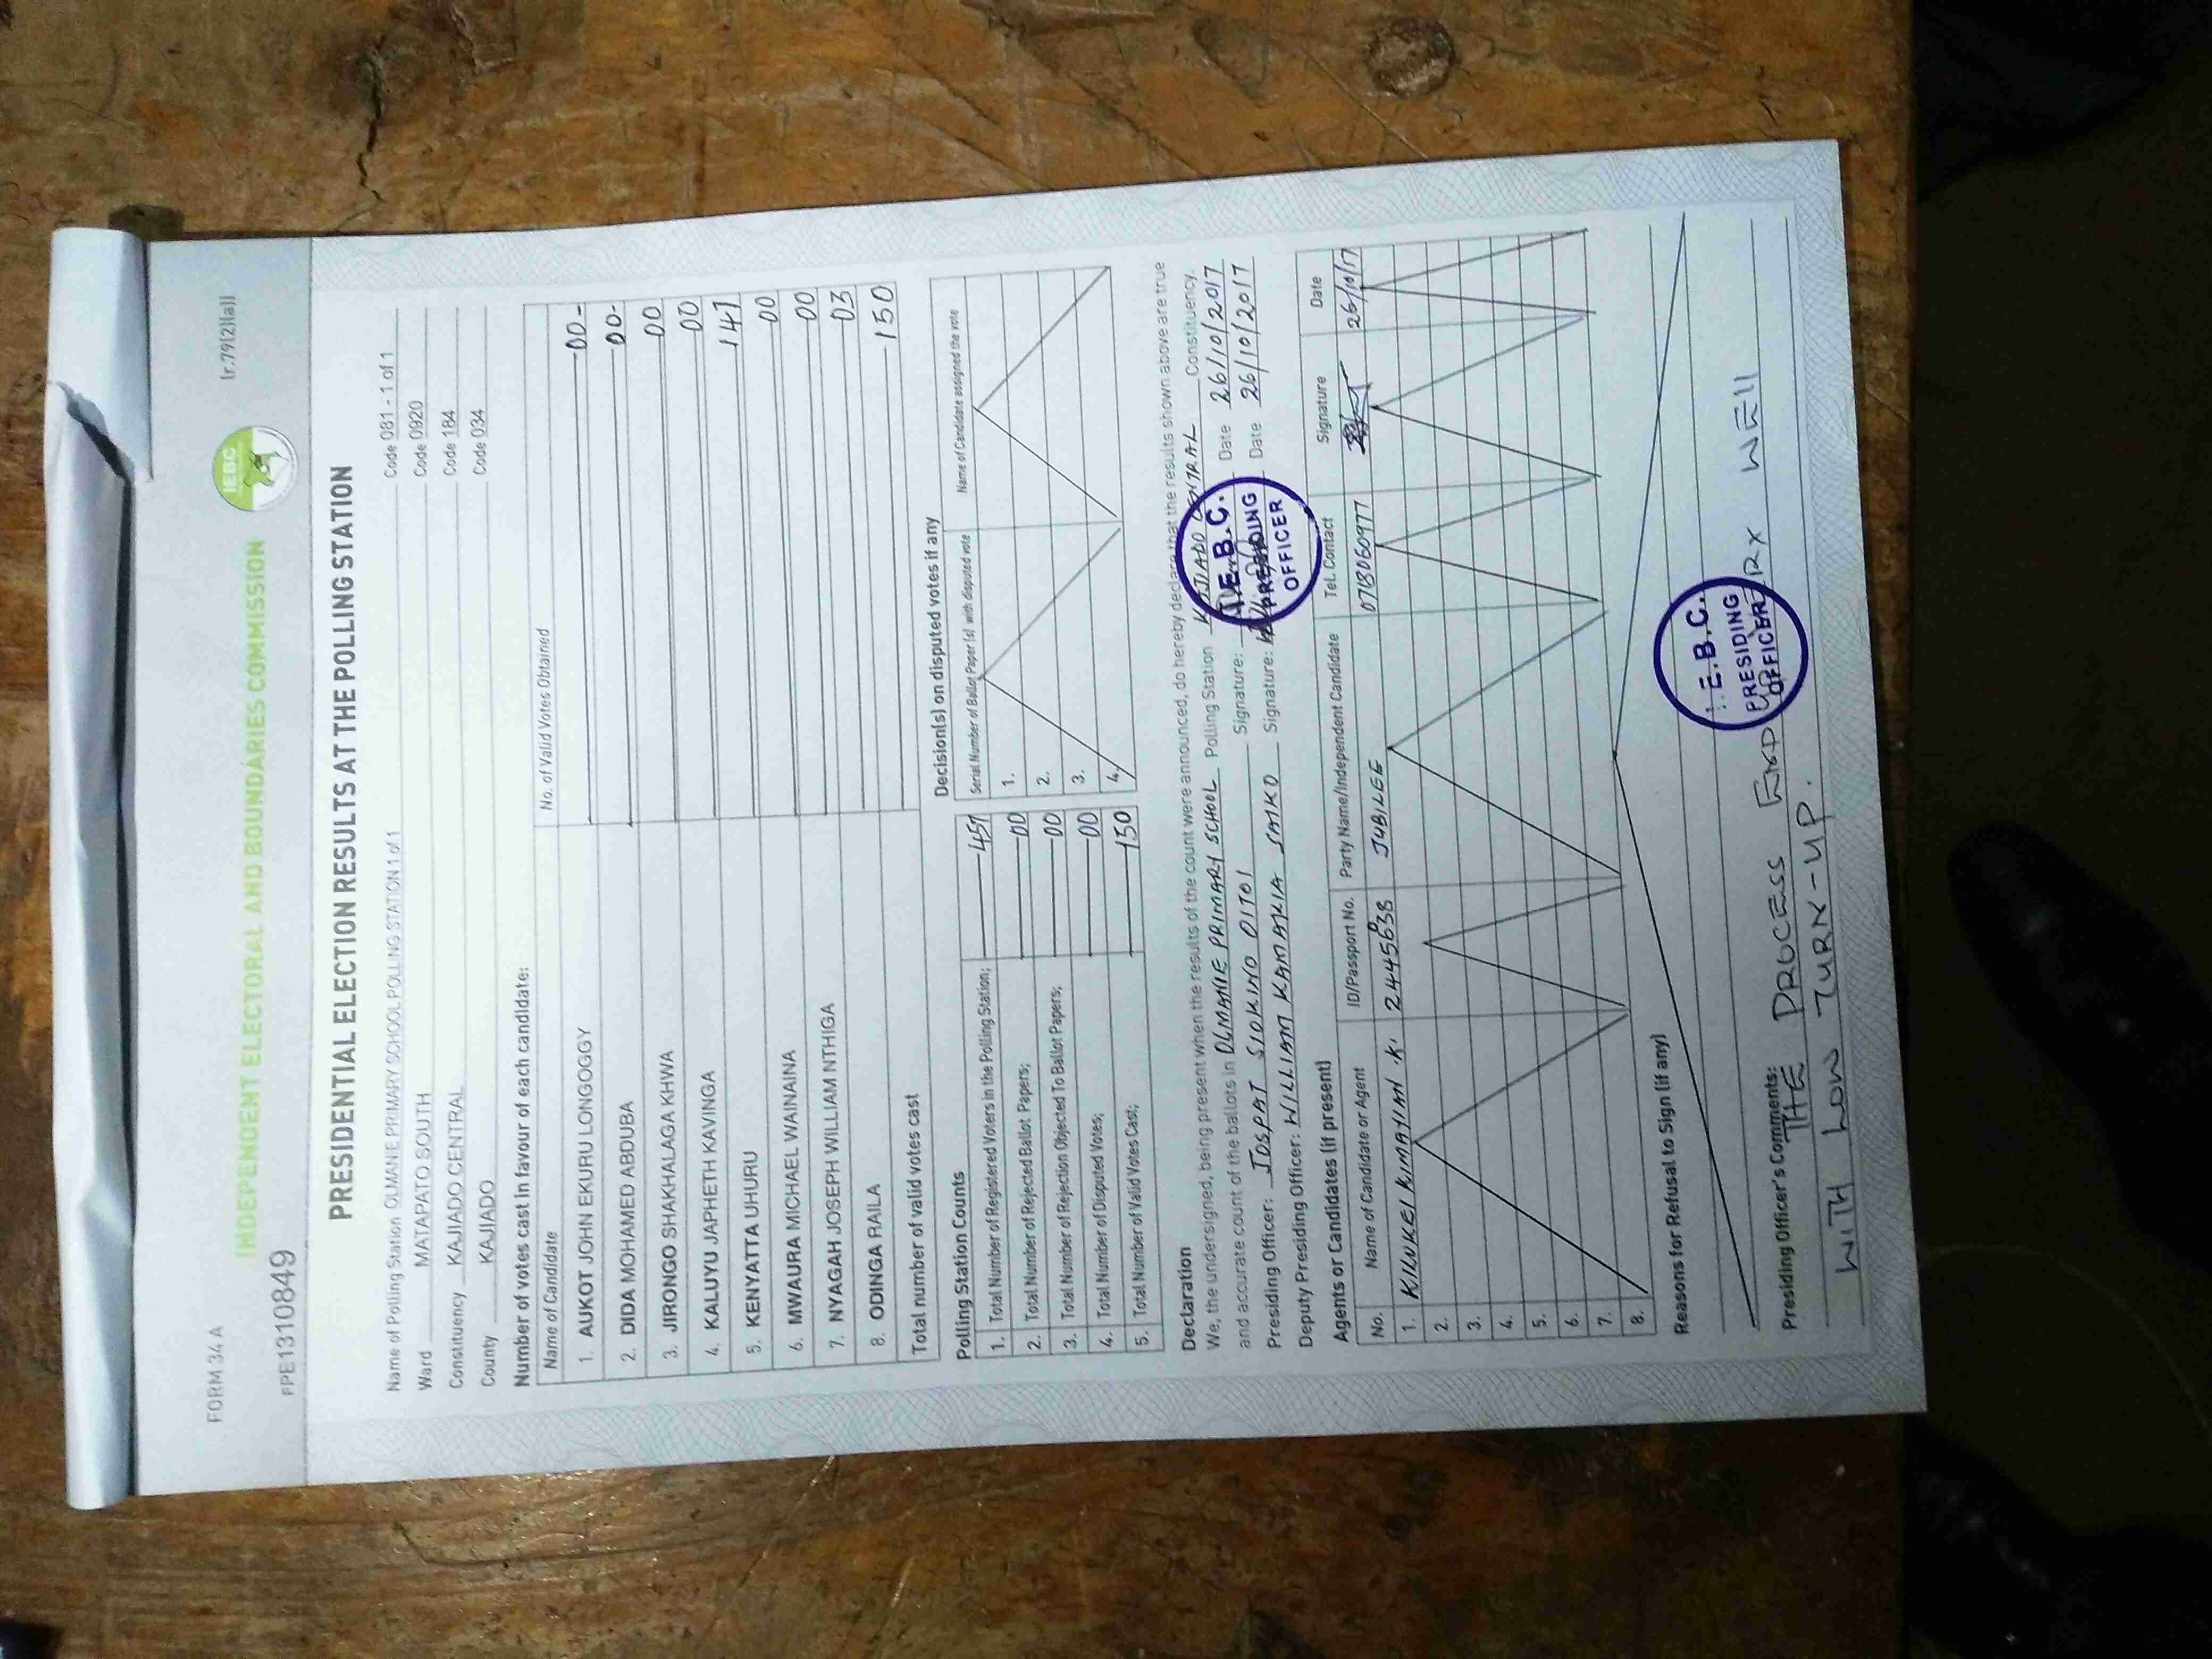 FORM 34 A
(r.79(2)(a))
INDEPENDENT ELECTORAL AND BOUNDARIES COMMISSION
IEBC
FPE1310849
PRESIDENTIAL ELECTION RESULTS AT THE POLLING STATION
Name of Polling Station OLMANIE PRIMARY SCHOOL POLLING STATION 1 of 1 Code 081 - 1 of 1
Ward MATAPATO SOUTH Code 0920
Constituency KAJIADO CENTRAL Code 184
County KAJIADO Code 034
Number of votes cast in favour of each candidate:
Name of Candidate No. of Valid Votes Obtained
1. AUKOT JOHN EKURU LONGOGGY 00-
2. DIDA MOHAMED ABDUBA 00-
3. JIRONGO SHAKHALAGA KHWA 00
4. KALUYU JAPHETH KAVINGA 00
5. KENYATTA UHURU 147
6. MWAURA MICHAEL WAINAINA 00
7. NYAGAH JOSEPH WILLIAM NTHIGA 00
8. ODINGA RAILA 03
Total number of valid votes cast 150
Polling Station Counts
1. Total Number of Registered Voters in the Polling Station; 457
2. Total Number of Rejected Ballot Papers; 00
3. Total Number of Rejection Objected To Ballot Papers; 00
4. Total Number of Disputed Votes; 00
5. Total Number of Valid Votes Cast; 150
Decision(s) on disputed votes if any
Serial Number of Ballot Paper (s) with disputed vote Name of Candidate assigned the vote
1.
2.
3.
4.
Declaration
We, the undersigned, being present when the results of the count were announced, do hereby declare that the results shown above are true
and accurate count of the ballots in OLMANIE PRIMARY SCHOOL Polling Station KAJIADO CENTRAL Constituency.
Presiding Officer: JOSPAT SIOKINO OITOI Signature: Date 26/10/2017
Deputy Presiding Officer: WILLIAM KAMAKIA SAIKO Signature: Date 26/10/2017
I.E.B.C.
PRESIDING
OFFICER
Agents or Candidates (if present)
No. Name of Candidate or Agent ID/Passport No. Party Name/Independent Candidate Tel. Contact Signature Date
1. KINKEI KIMAYIAN .K. 24445638 JUBILEE 0718060977 26/10/17
2.
3.
4.
5.
6.
7.
8.
Reasons for Refusal to Sign (if any)
I.E.B.C.
PRESIDING
OFFICER
Presiding Officer's Comments:
THE PROCESS WELL
WITH LOW TURN-UP.